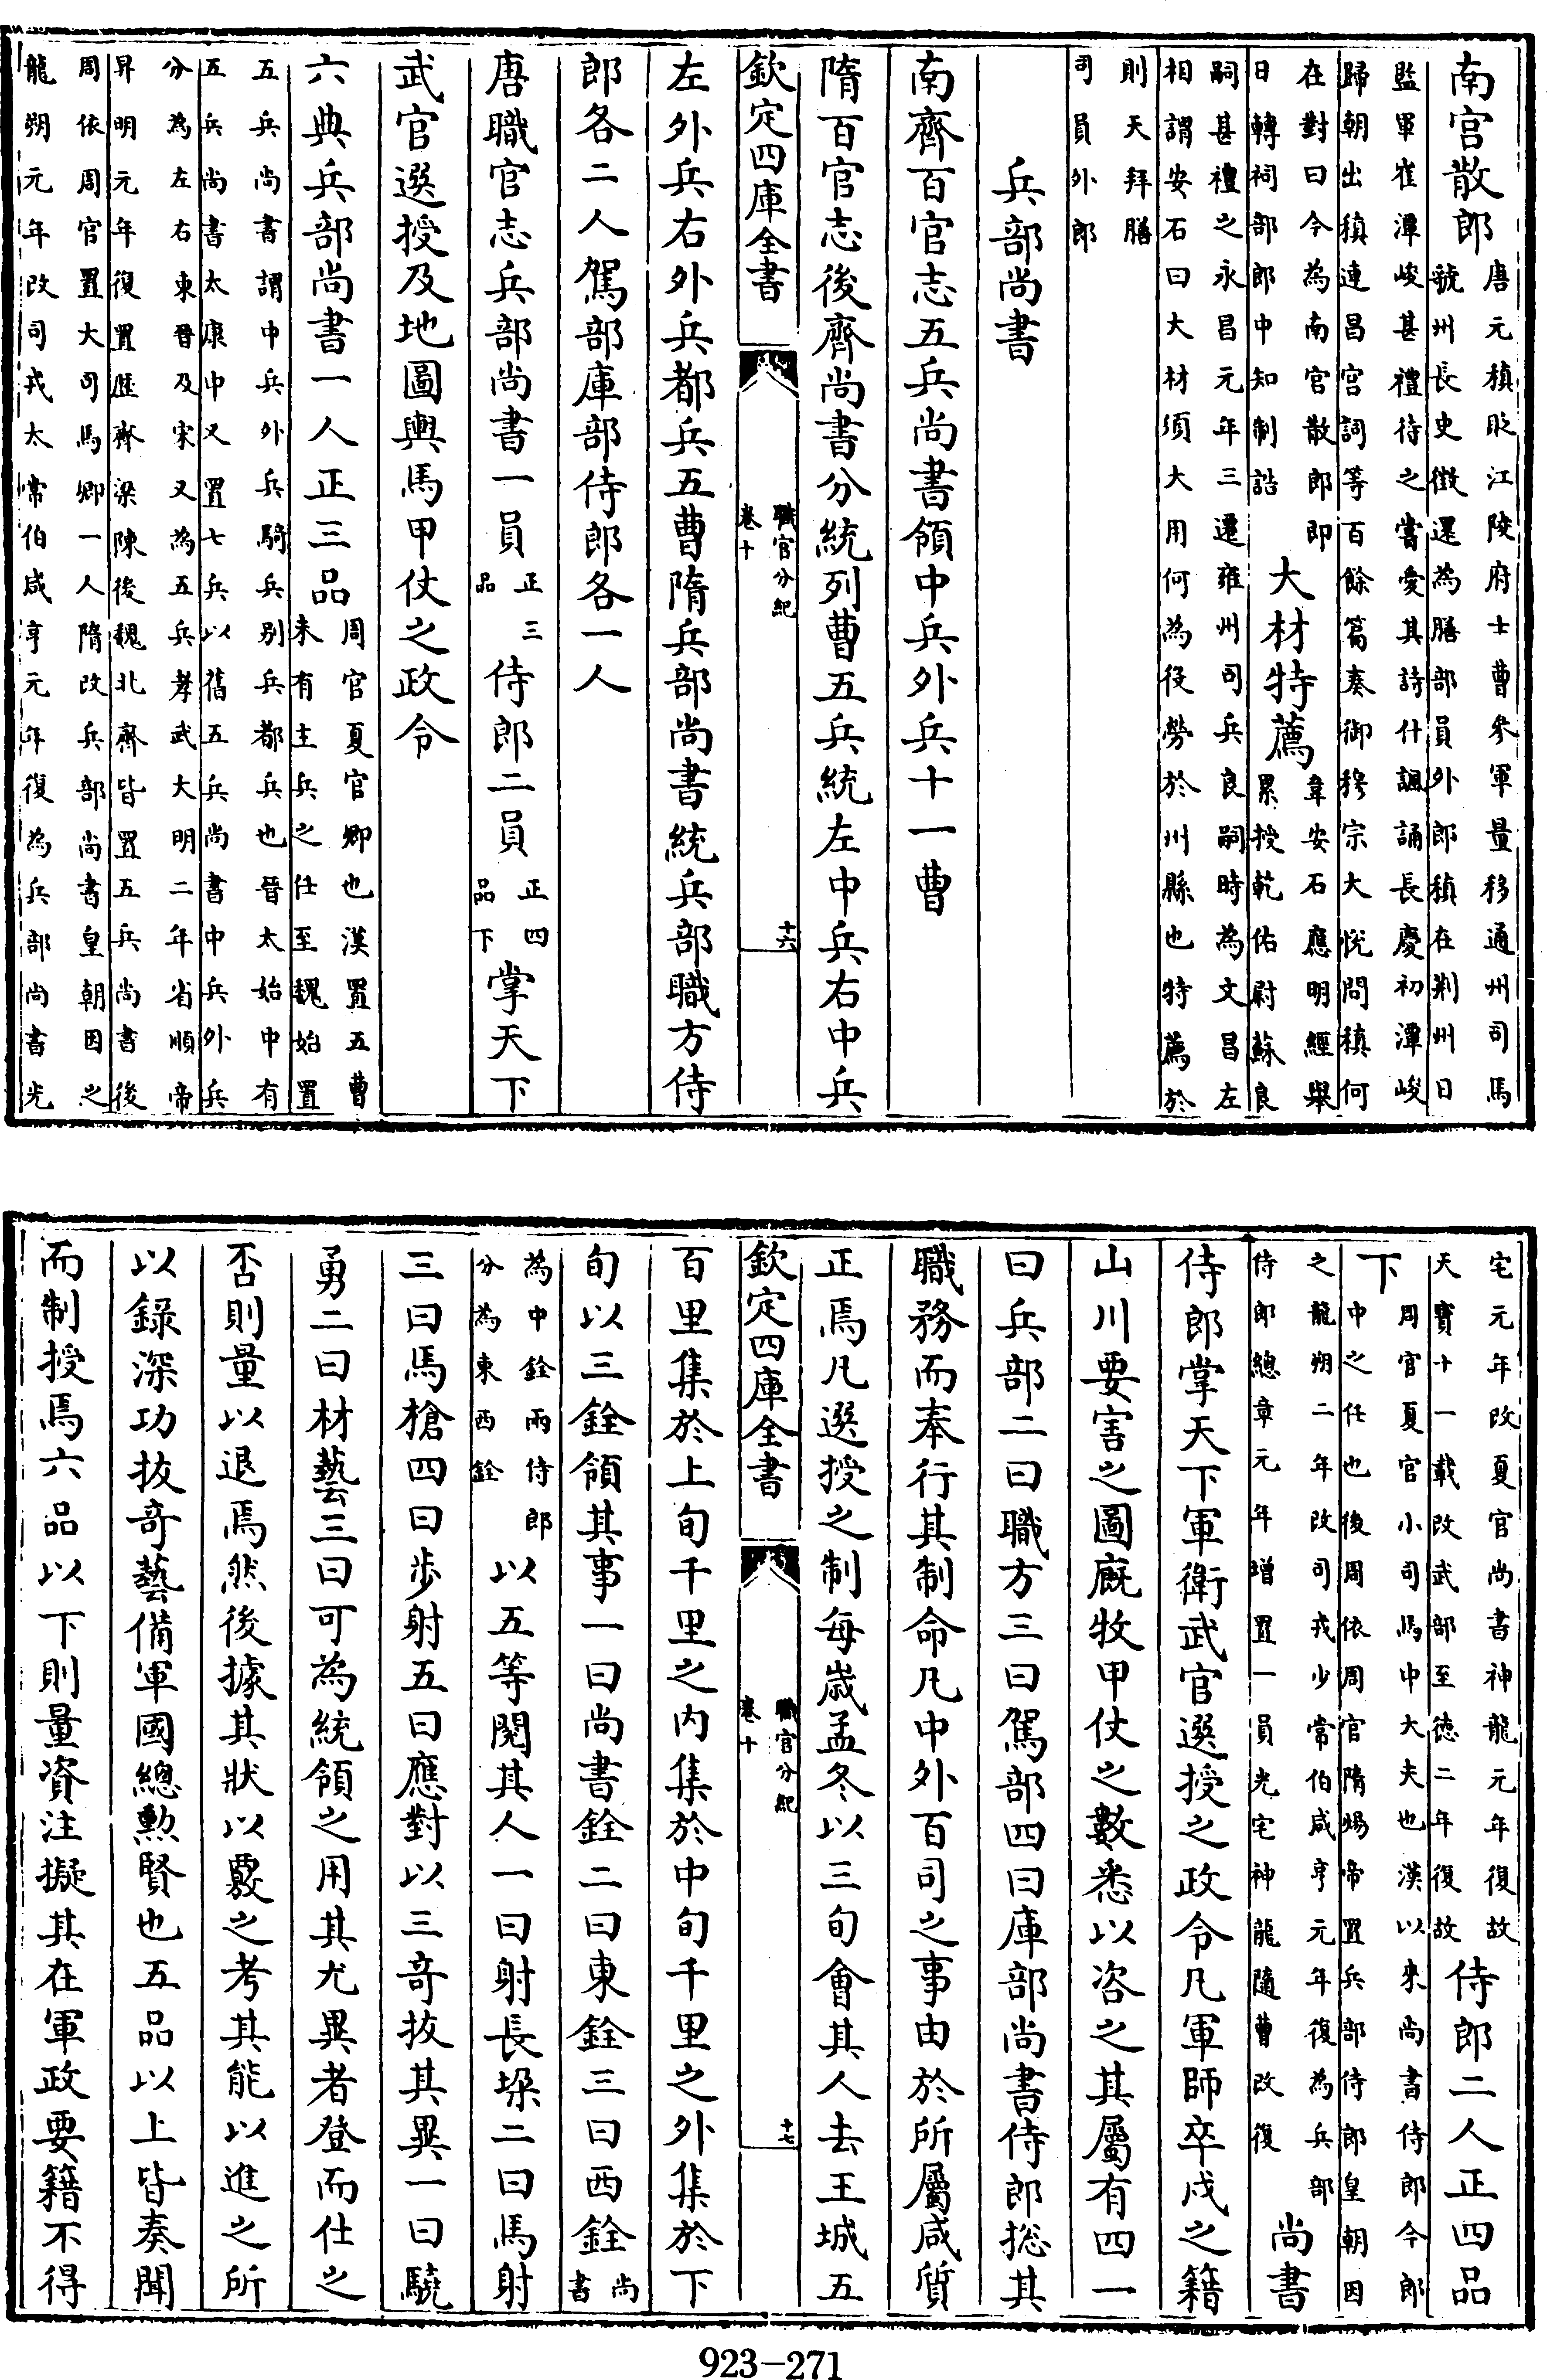 南宫散郎唐元稹貶江陵府士曹參軍量移通州司馬
虢州長史徵還為膳部員外郎稹在荆州日
監軍崔潭峻甚禮待之嘗愛其詩什諷誦長慶初潭峻
歸朝出稹連昌宫詞等百餘篇奏御穆宗大悅問稹何
在對曰今為南官散郎即
日轉祠部郎中知制誥
大材特薦韋安石應明經舉
累授乾佑尉蘇良
嗣甚禮之永昌元年三遷雍州司兵良嗣時為文昌左
相謂安石曰大材須大用何為役勞於州縣也特薦於
則天拜膳
司員外郎
兵部尚書
南齊百官志五兵尚書領中兵外兵十一曹
隋百官志後齊尚書分統列曹五兵統左中兵右中兵
欽定四庫全書
職官分紀
卷十
十六
左外兵右外兵都兵五曹隋兵部尚書統兵部職方侍
郎各二人駕部庫部侍郎各一人
唐職官志兵部尚書一員正三
品
侍郎二員正四
品下
掌天下
武官選授及地圖輿馬甲仗之政令
六典兵部尚書一人正三品周官夏官卿也漢置五曹
未有主兵之任至魏始置
五兵尚書謂中兵外兵騎兵别兵都兵也晉太始中有
五兵尚書太康中又置七兵以舊五兵尚書中兵外兵
分為左右東晉及宋又為五兵孝武大明二年省順帝
昇明元年復置歴齊梁陳後魏北齊皆置五兵尚書後
周依周官置大司馬卿一人隋改兵部尚書皇朝因之
龍朔元年改司戎太常伯咸亨元年復為兵部尚書光
宅元年改夏官尚書神龍元年復故
天寶十一載改武部至德二年復故
侍郎二人正四品
下周官夏官小司馬中大夫也漢以來尚書侍郎今郎
中之任也後周依周官隋煬帝置兵部侍郎皇朝因
之龍朔二年改司戎少常伯咸亨元年復為兵部
侍郎總章元年增置一員光宅神龍隨曹改復
尚書
侍郎掌天下軍衛武官選授之政令凡軍師卒戍之籍
山川要害之圖廐牧甲仗之數悉以咨之其屬有四一
曰兵部二曰職方三曰駕部四曰庫部尚書侍郎揔其
職務而奉行其制命凡中外百司之事由於所屬咸質
正焉凡選授之制每歲孟冬以三旬會其人去王城五
欽定四庫全書
職官分紀
卷十
十七
百里集於上旬千里之内集於中旬千里之外集於下
旬以三銓領其事一曰尚書銓二曰東銓三曰西銓尚
書
為中銓兩侍郎
分為東西銓
以五等閱其人一曰射長垛二曰馬射
三曰馬槍四曰步射五曰應對以三竒拔其異一曰驍
勇二曰材藝三曰可為統領之用其尤異者登而仕之
否則量以退焉然後據其狀以覈之考其能以進之所
以錄深功拔竒藝備軍國總勲賢也五品以上皆奏聞
而制授焉六品以下則量資注擬其在軍政要籍不得
923-271